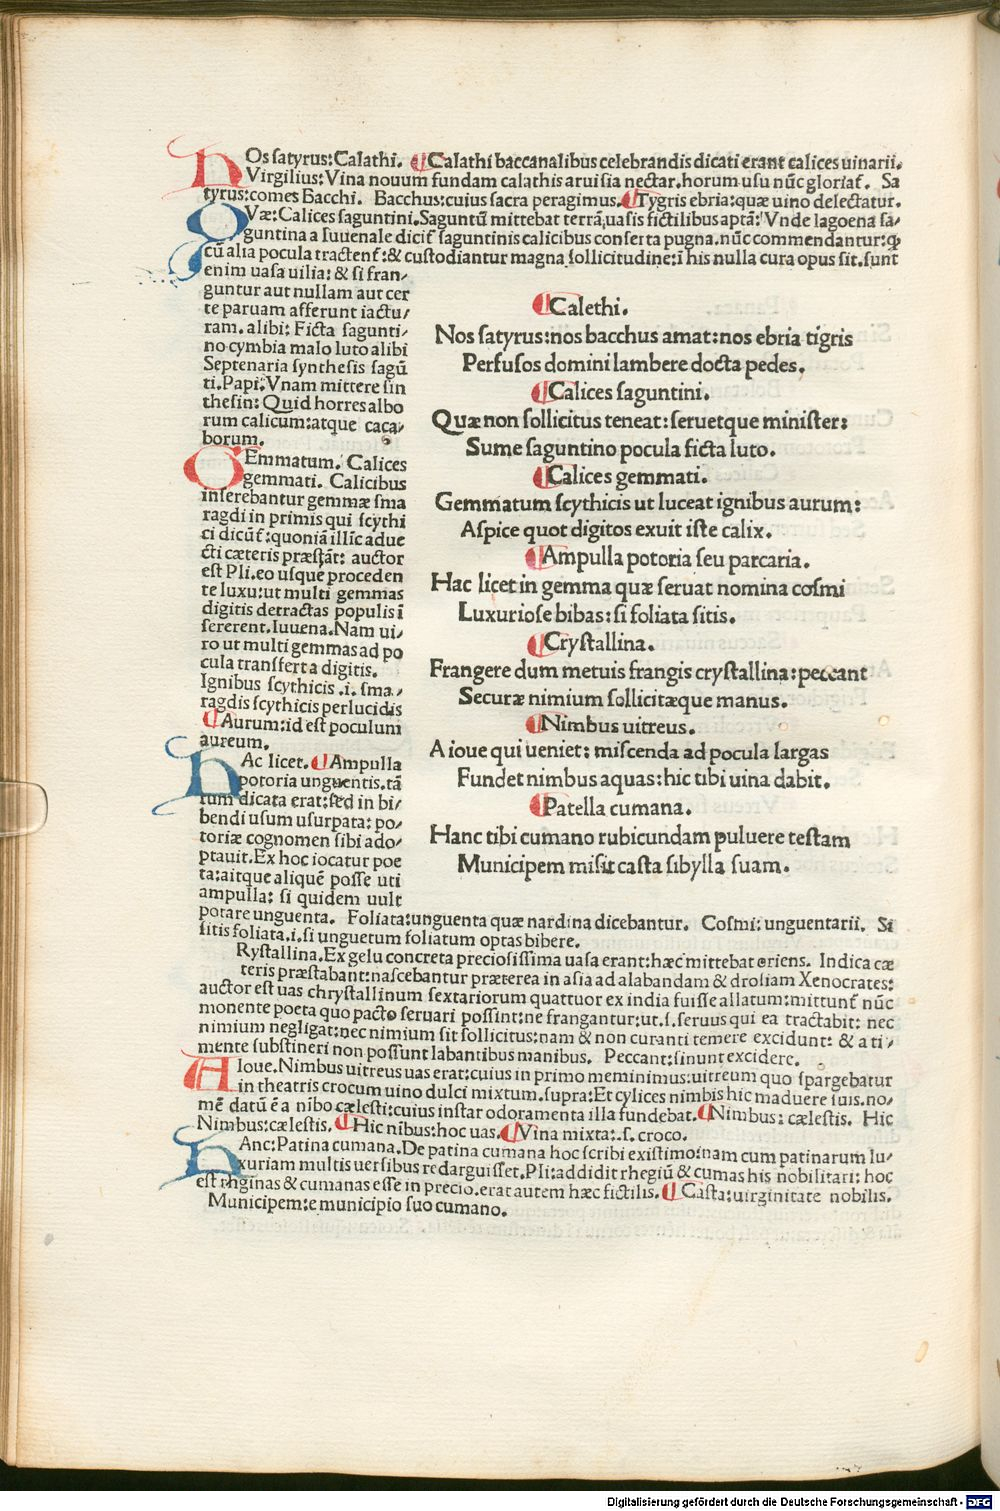 HOs satyrus:Calathi. ¶Calathi baccanalibus celebrandis dicati erant calices uinarii.
Virgilius: Vina nouum fundam calathis aruisia nectar.horum usu nūc gloriat̄. Sa
tyrus:comes Bacchi. Bacchus:cuius sacra peragimus.¶Tygris ebria:quæ uino delectatur.
QVæ: Calices saguntini.Saguntū mittebat terrā,uasis fictilibus aptā:Vnde lagoena sa/
guntina a Iuuenale dicit̄ saguntinis calicibus conserta pugna.nūc commendantur:ꝙ
cū alia pocula tractent̄:& custodiantur magna sollicitudine:ī his nulla cura opus sit.sunt
enim uasa uilia: & si fran/
guntur aut nullam aut cer
te paruam afferunt iactu/
ram.alibi: Ficta sagunti/
no cymbia malo luto alibi
Septenaria synthesis sagū
ti.Papi.Vnam mittere sin
thesin: Quid horres albo
rum calicum:atque caca/
borum.
GEmmatum. Calices
gemmati. Calicibus
inserebantur gemmæ sma
ragdi in primis qui scythi
ci dicūt̄:quoniā illīc adue
cti cæteris præstāt: auctor
est Pli.eo usque proceden
te luxu:ut multi gemmas
digitis detractas populis ī
sererent.Iuuena.Nam ui/
ro ut multi gemmas ad po
cula transfert a digitis.
Ignibus scythicis .i. sma/
ragdis scythicis perlucidis
¶Aurum:id est poculum
aureum.
HAc licet. ¶Ampulla
potoria unguentis.tā
tum dicata erat:sed in bi/
bendi usum usurpata: po/
toriæ cognomen sibi ado/
ptauit.Ex hoc iocatur poe
ta:aitque aliquē posse uti
ampulla: si quidem uult
potare unguenta. Foliata:unguenta quæ nardina dicebantur. Cosmi: unguentarii. Si
sitis foliata.i.si unguetum foliatum optas bibere.
Rystallina.Ex gelu concreta preciosissima uasa erant:hæc mittebat oriens. Indica cæ
teris præstabant:nascebantur præterea in asia ad alabandam & drosiam Xenocrates:
auctor est uas chrystallinum sextariorum quattuor ex india fuisse allatum:mittunt̄ nūc
monente poeta quo pacto seruari possint:ne frangantur:ut.s.seruus qui ea tractabit: nec
nimium negligat:nec nimium sit sollicitus:nam & non curanti temere excidunt: & a ti/
mente substineri non possunt labantibus manibus. Peccant:sinunt excidere.
AIoue.Nimbus uitreus uas erat:cuius in primo meminimus:uitreum quo spargebatur
in theatris crocum uino dulci mixtum.supra:Et cylices nimbis hic maduere suis.no/
mē datū ē a nībo cælesti:cuius instar odoramenta illa fundebat.¶Nimbus: cælestis. Hic
Nimbus:cælestis.¶Hic nibus:hoc uas.¶Vina mixta:.s.croco.
HAnc:Patina cumana.De patina cumana hoc scribi existimo:nam cum patinarum lu/
xuriam multis uersibus redarguisset.Pli:addidit rhegiū & cumas his nobilitari: hoc
est rhginas & cumanas esse in precio.erat autem hæc fictilis. ¶Casta:uirginitate nobilis.
Municipem:e municipio suo cumano.
¶Calethi.
Nos satyrus:nos bacchus amat:nos ebria tigris
Perfusos domini lambere docta pedes.
¶Calices saguntini.
Quæ non sollicitus teneat:seruetque minister:
Sume saguntino pocula ficta luto.
¶Calices gemmati.
Gemmatum scythicis ut luceat ignibus aurum:
Aspice quot digitos exuit iste calix.
¶Ampulla potoria seu parcaria.
Hac licet in gemma quæ seruat nomina cosmi
Luxuriose bibas:si foliata sitis.
¶Crystallina.
Frangere dum metuis frangis crystallina:peccant
Securæ nimium sollicitæque manus.
¶Nimbus uitreus.
A ioue qui ueniet: miscenda ad pocula largas
Fundet nimbus aquas:hic tibi uina dabit.
¶Patella cumana.
Hanc tibi cumano rubicundam puluere testam
Municipem misit casta sibylla suam.
Digitalisierung gefördert durch die Deutsche Forschungsgemeinschaft - DFG